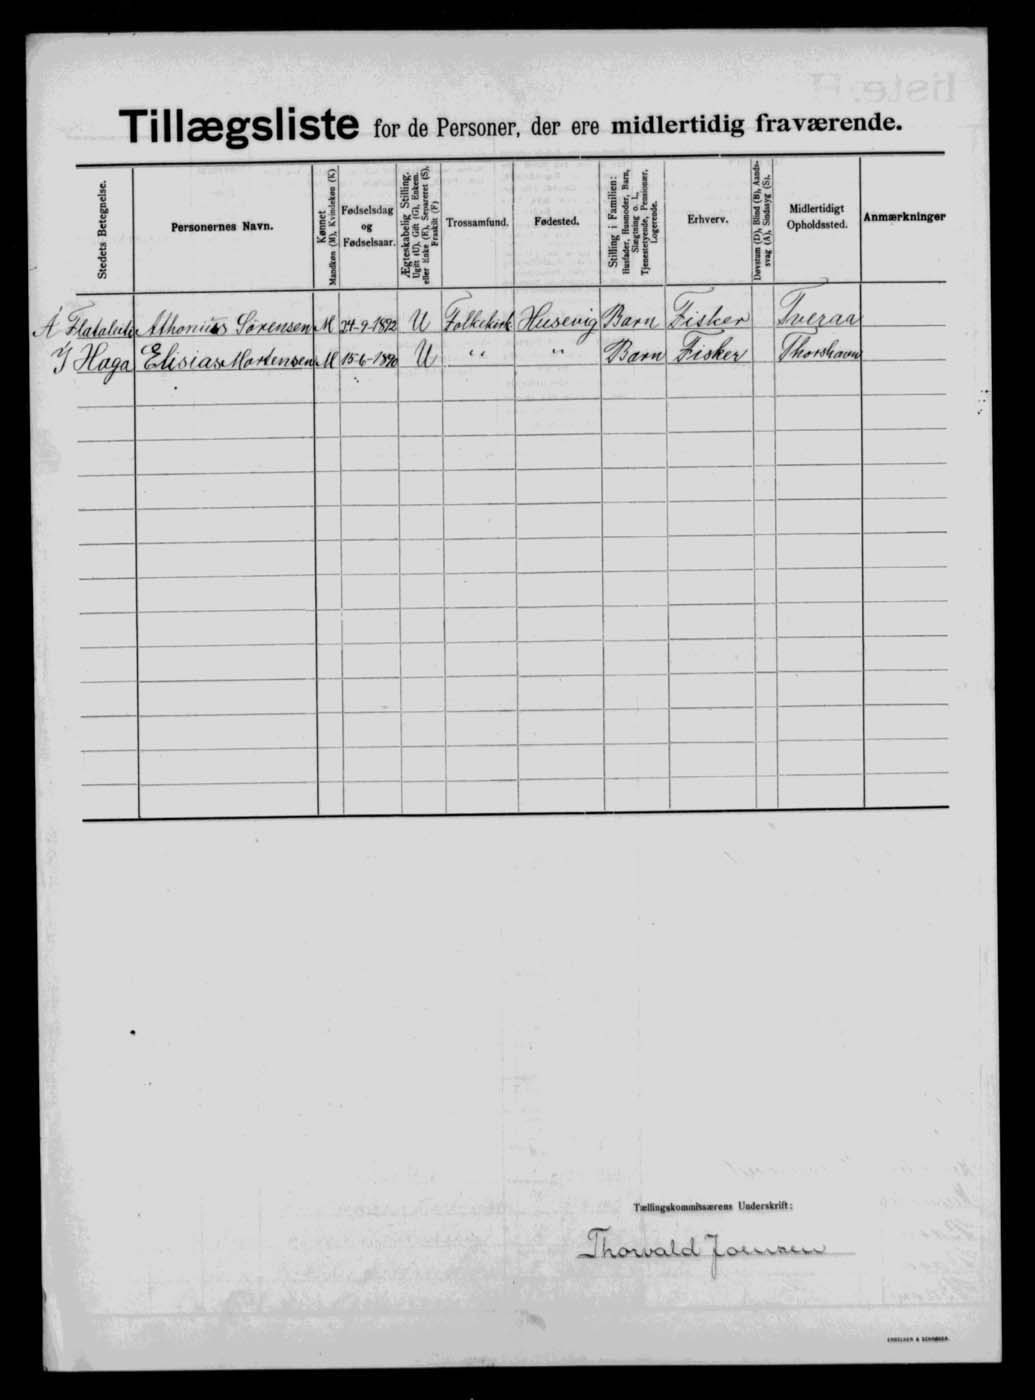 Tillægsliste for de Personer, der ere midlertidig fraværende.
Stedets Betegnelse.
Personernes Navn.
Kønnet
Mandkøn (M), Kvindekøn (K)
Fødselsdag
og
Fødselsaar.
Ægteskabelig Stilling.
Ugift (U), Gift (G), Enkem.
eller Enke (E), Separeret (S),
Fraskilt (F)
Trossamfund.
Fødested.
Stilling i Familien:
Husfader, Husmoder, Barn,
Slægtning o. l.,
Tjenestetyende, Pensionær,
Logerende.
Erhverv.
Døvstum (D), Blind (B), Aands-
svag (A), Sindssyg (S).
Midlertidigt
Opholdssted.
Anmærkninger
Á Sørensen M 24-9-1892 U Folkekirk Husevig Barn Fisker Tveraa
Í Haga Elisias Mortensen M 15-6-1890 U " " Barn Fisker Thorshavn
Tællingskommissærens Underskrift:
Thorvald Joensen